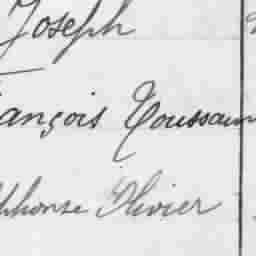 Joseph
ançois Toussain
phonse Olivier